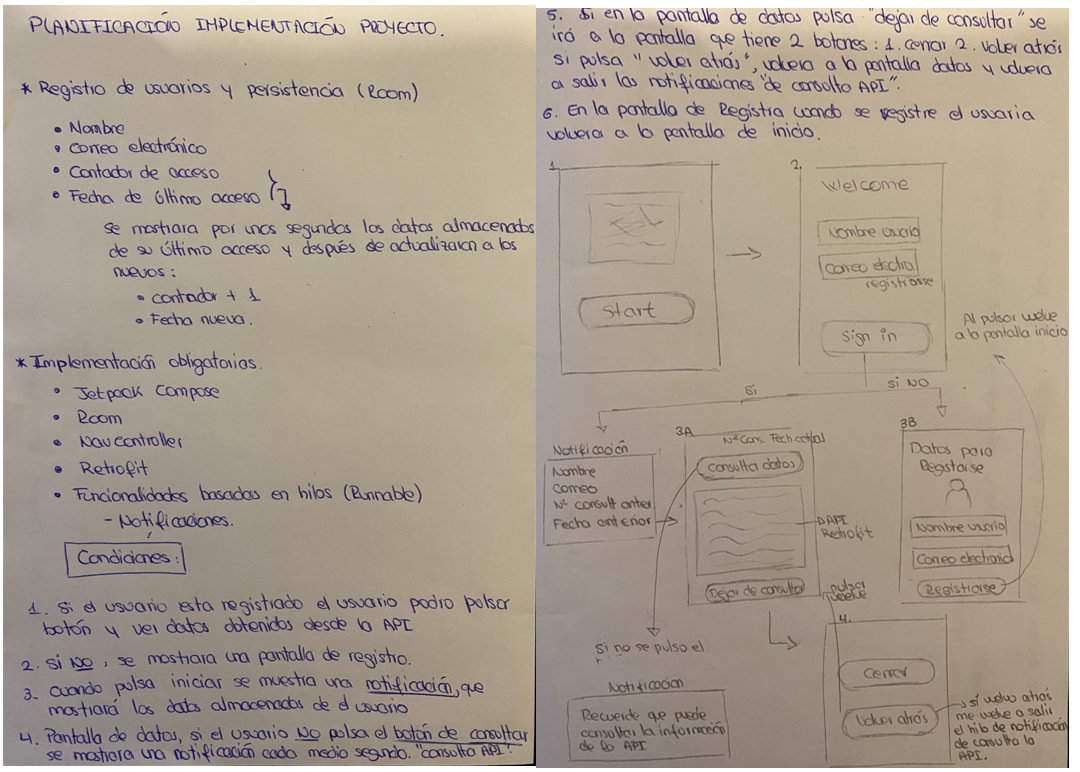 PLANIFICACIÓN IMPLEMENTACIÓN PROYECTO.
* Registro de usuarios y persistencia (Room)
• Nombre
• Correo electrónico
• Contador de acceso
• Fecha de último acceso
se mostrara por unos segundos los datos almacenados
de su último acceso y después de actualizaran a los
nuevos:
• contador + 1
• Fecha nueva.
* Implementación obligatorias.
• Jetpack Compose
• Room
• Navcontroller
• Retrofit
• Funcionalidades basadas en hilos (Runnable)
- Notificaciones.
Condiciones:
1. Si el usuario esta registrado el usuario podra pulsar
botón y ver datos obtenidos desde la API
2. Si NO, se mostrara una pantalla de registro.
3. Cuando pulsa iniciar se muestra una notificación, que
mostrará los datos almacenados de el usuario
4. Pantalla de datos, si el usuario NO pulsa el botón de consultar
se mostrara una notificación cada medio segundo. "consulta API".
5. Si en la pantalla de datos pulsa "dejar de consultar" se
irá a la pantalla que tiene 2 botones: 1. cerrar 2. volver atrás
si pulsa "volver atrás", volvera a la pantalla datos y volvera
a salir las notificaciones "de consulta API".
6. En la pantalla de Registra cuando se registre el usuario
volvera a la pantalla de inicio.
1.
Start
2.
Welcome
Nombre usuario
Correo electro
registrarse
Sign in
Al pulsar vuelve
a la pantalla inicio
si
si NO
Notificación
Nombre
Correo
Nº consult anter
Fecha anterior
3A
Nº Con. Fech. actual
consulta datos
API
Retrofit
Dejar de consultar
pulsar
vuelve
3B
Datos para
Registarse
Nombre usuario
Correo electronic
Registrarse
si no se pulsa el
Notificación
Recuerde que puede
consultar la información
de la API
4.
Cerrar
Volver atrás
si vuelvo atrás
me vuelve a salir
el hilo de notificación
de consulta la
API.